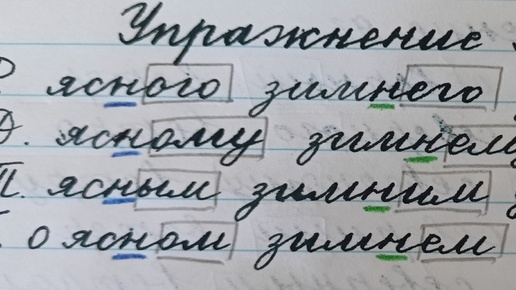 Упражнение
Р. ясного зимнего
Д. ясному зимнему
П. ясным зимним
о ясном зимнем